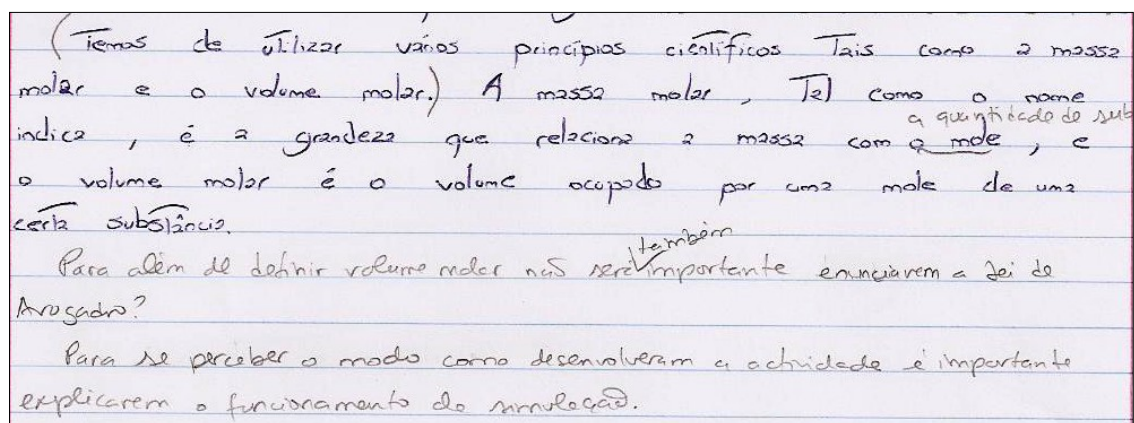 (Temos de utilizar vários princípios científicos tais como a massa
molar e o volume molar.) A massa molar, tal como o nome
a quantidade de sub
indica, é a grandeza que relaciona a massa com a mole, e
o volume molar é o volume ocupado por uma mole de uma
certa substância.
também
Para além de definir volume molar não será importante enunciarem a Lei de
Avogadro?
Para se perceber o modo como desenvolveram a actividade é importante
explicarem o funcionamento da simulação.